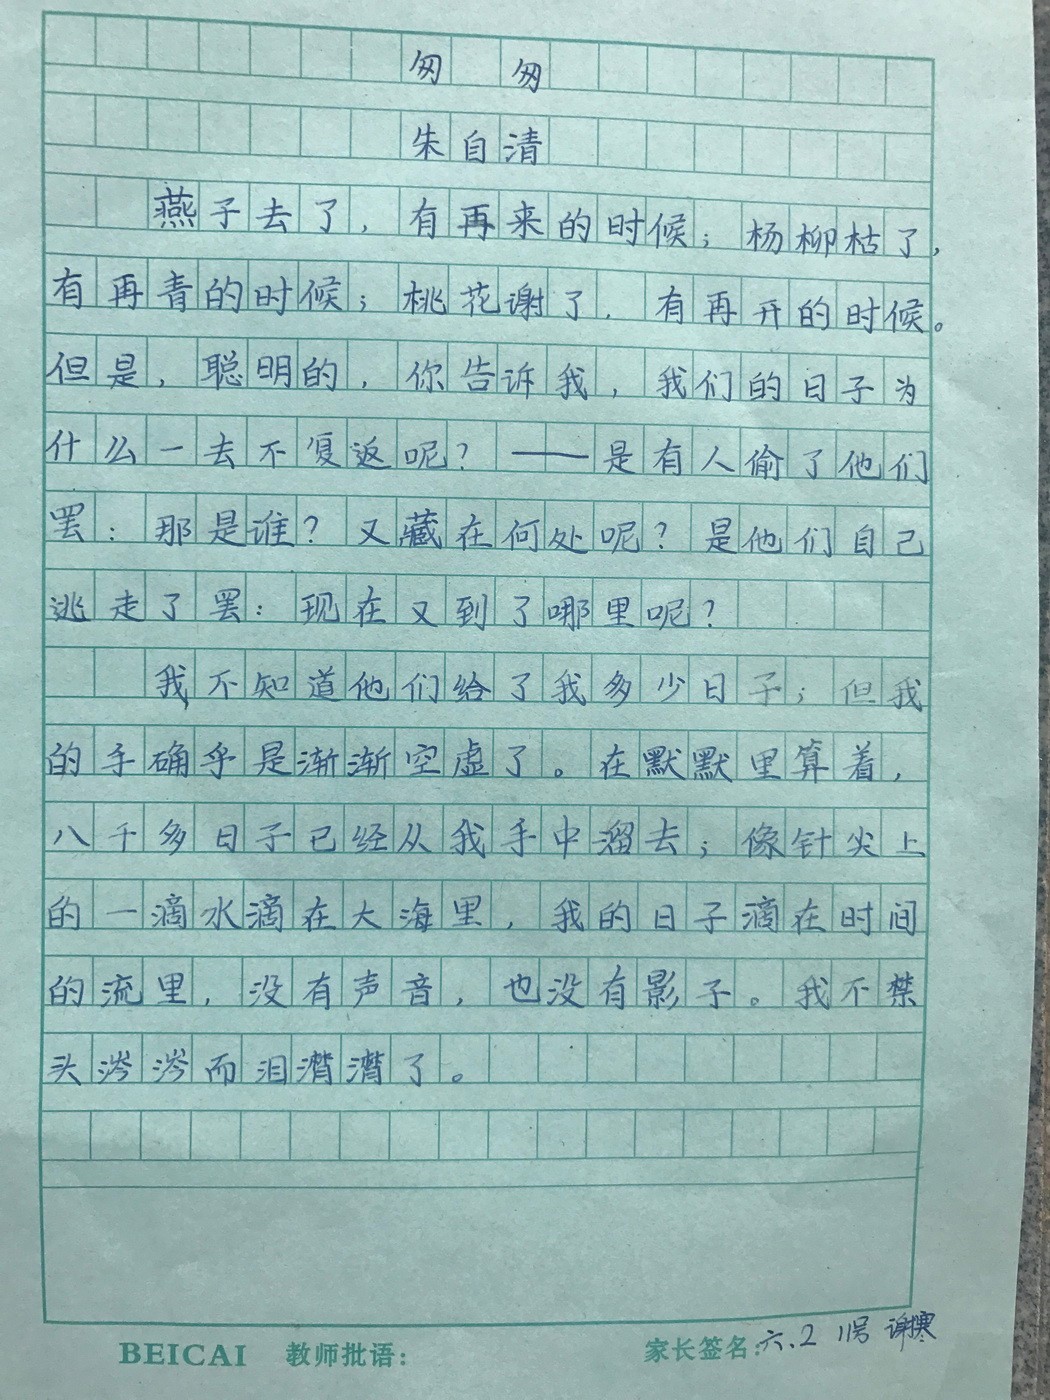 匆 匆
朱自清
燕子去了，有再来的时候；杨柳枯了，
有再青的时候；桃花谢了，有再开的时候。
但是，聪明的，你告诉我，我们的日子为
什么一去不复返呢？——是有人偷了他们
罢：那是谁？又藏在何处呢？是他们自己
逃走了罢：现在又到了哪里呢？
我不知道他们给了我多少日子；但我
的手确乎是渐渐空虚了。在默默里算着，
八千多日子已经从我手中溜去；像针尖上
的一滴水滴在大海里，我的日子滴在时间
的流里，没有声音，也没有影子。我不禁
头涔涔而泪潸潸了。
BEICAI 教师批语： 家长签名：六.2 11号 谢寒